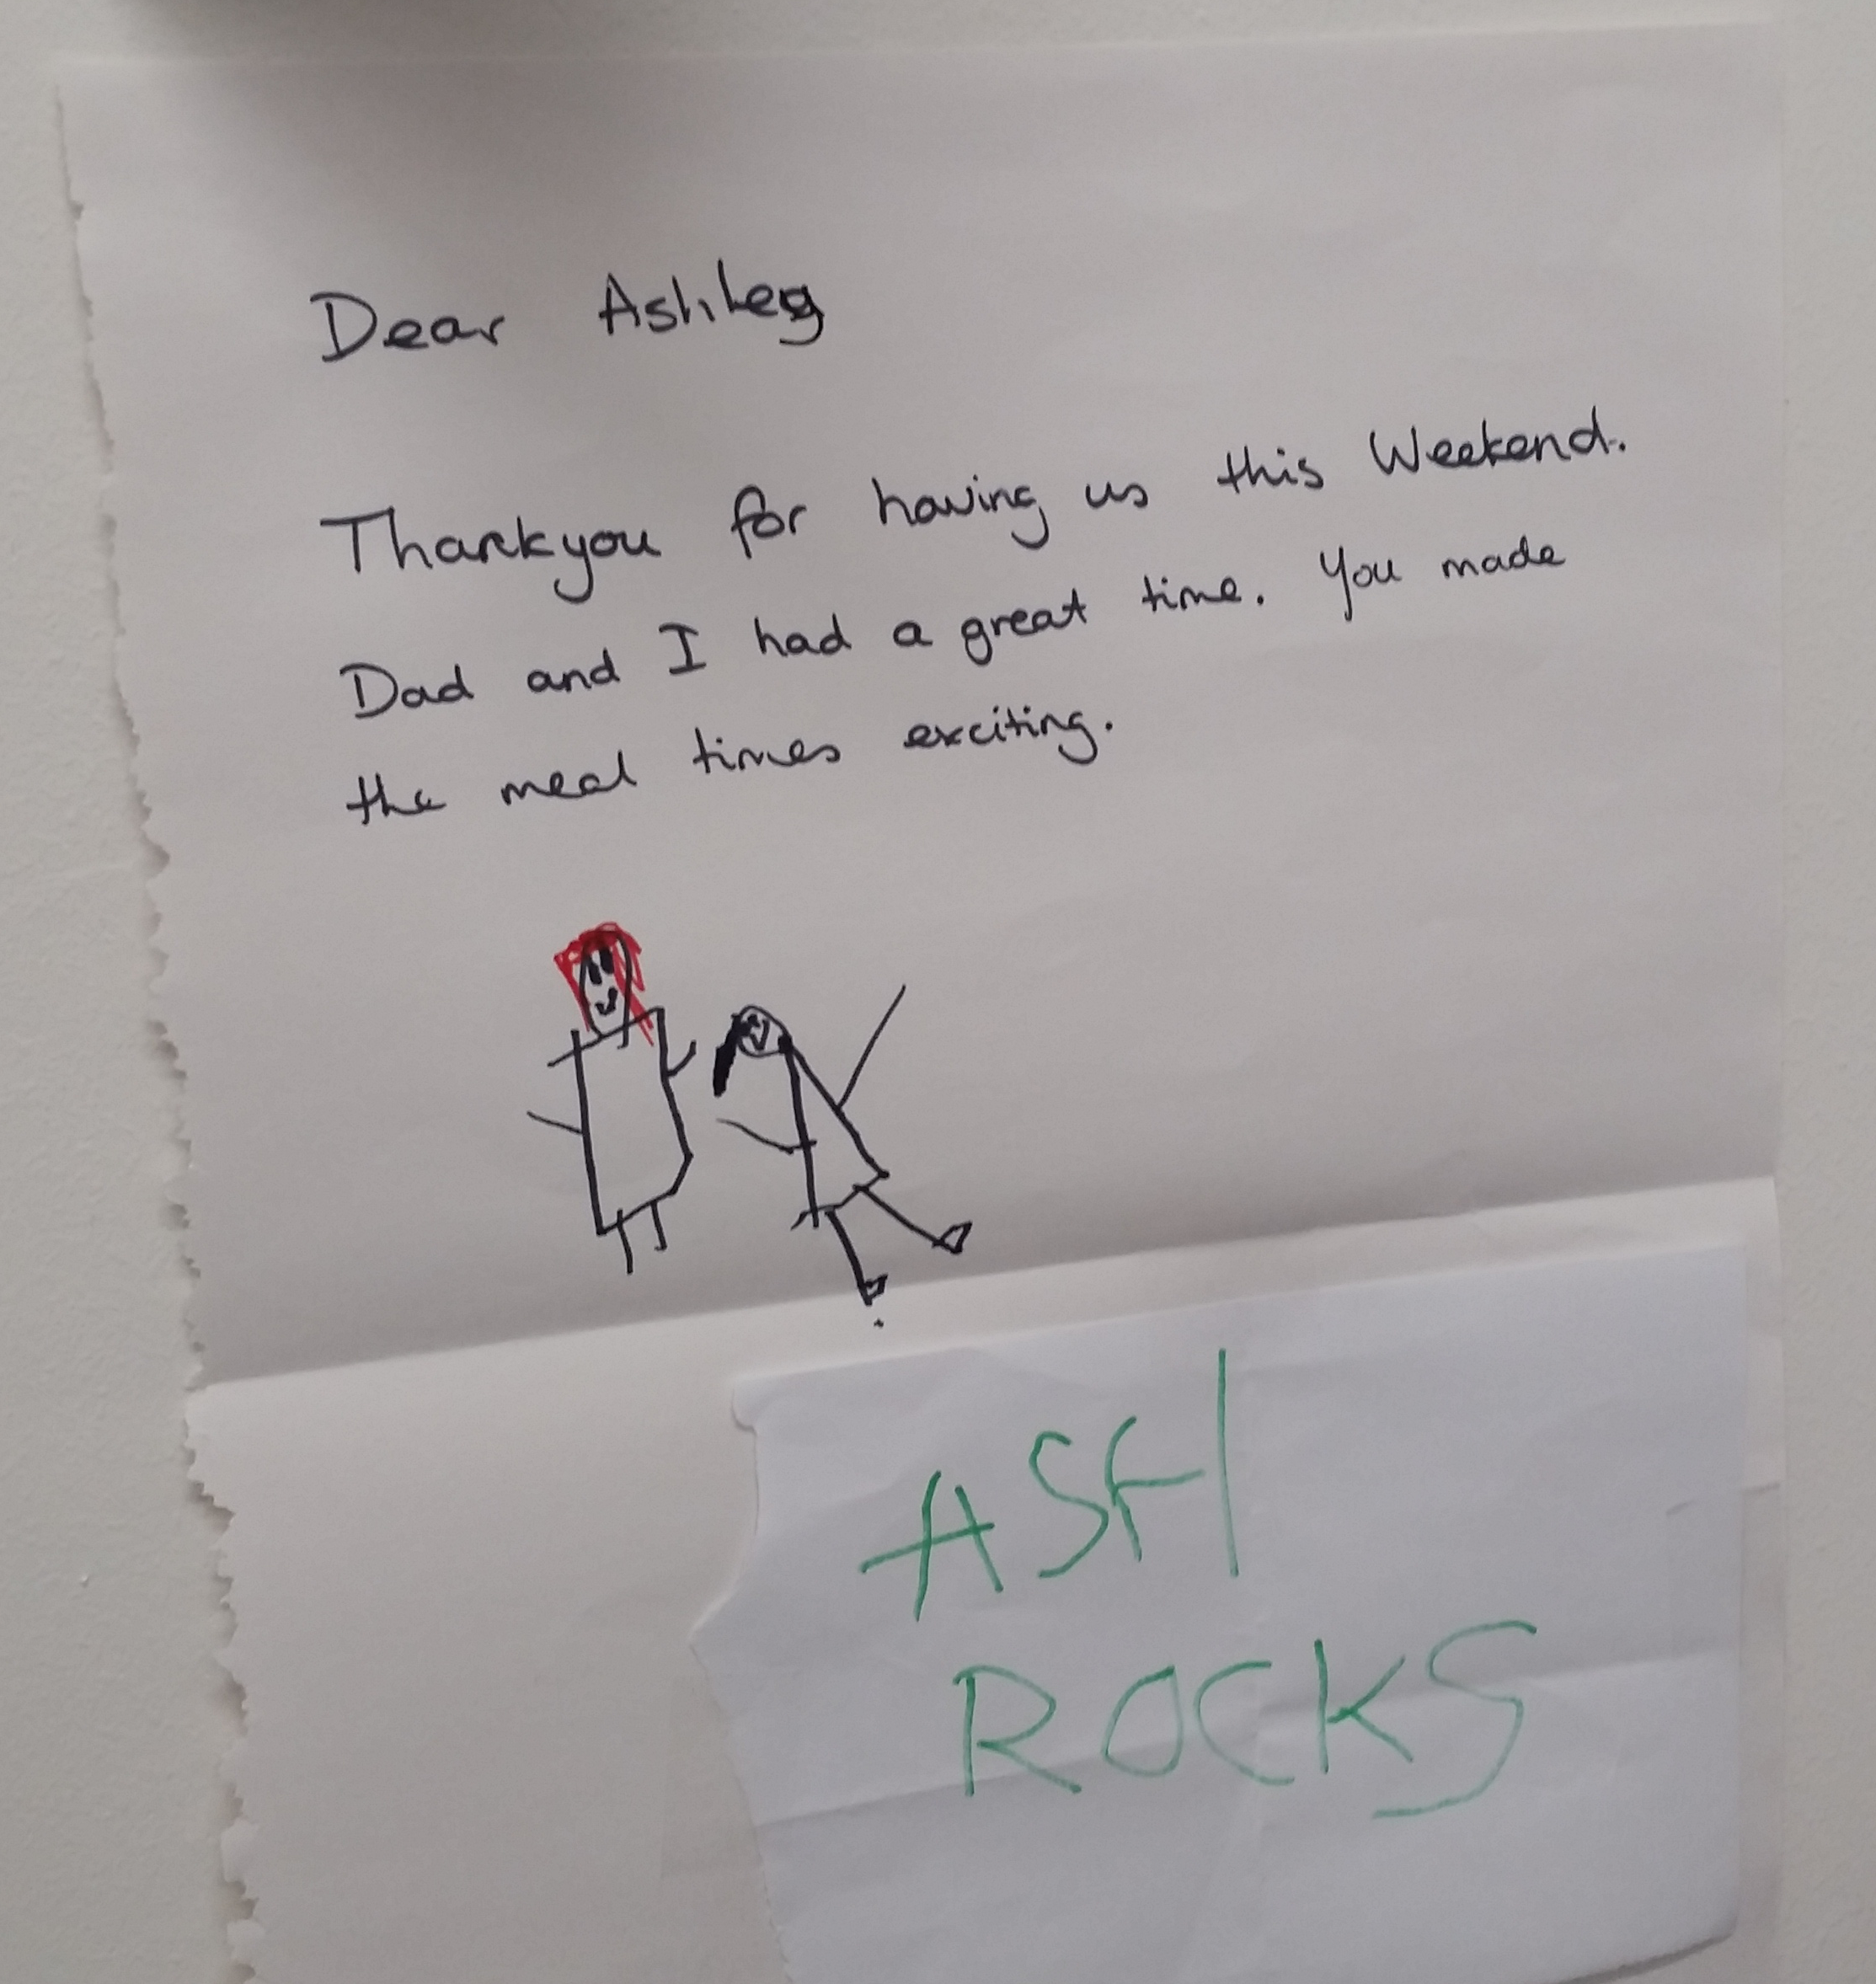 Dear Ashley
Thankyou for having us this Weekend.
Dad and I had a great time. You made
the meal times exciting.
ASH
ROCKS